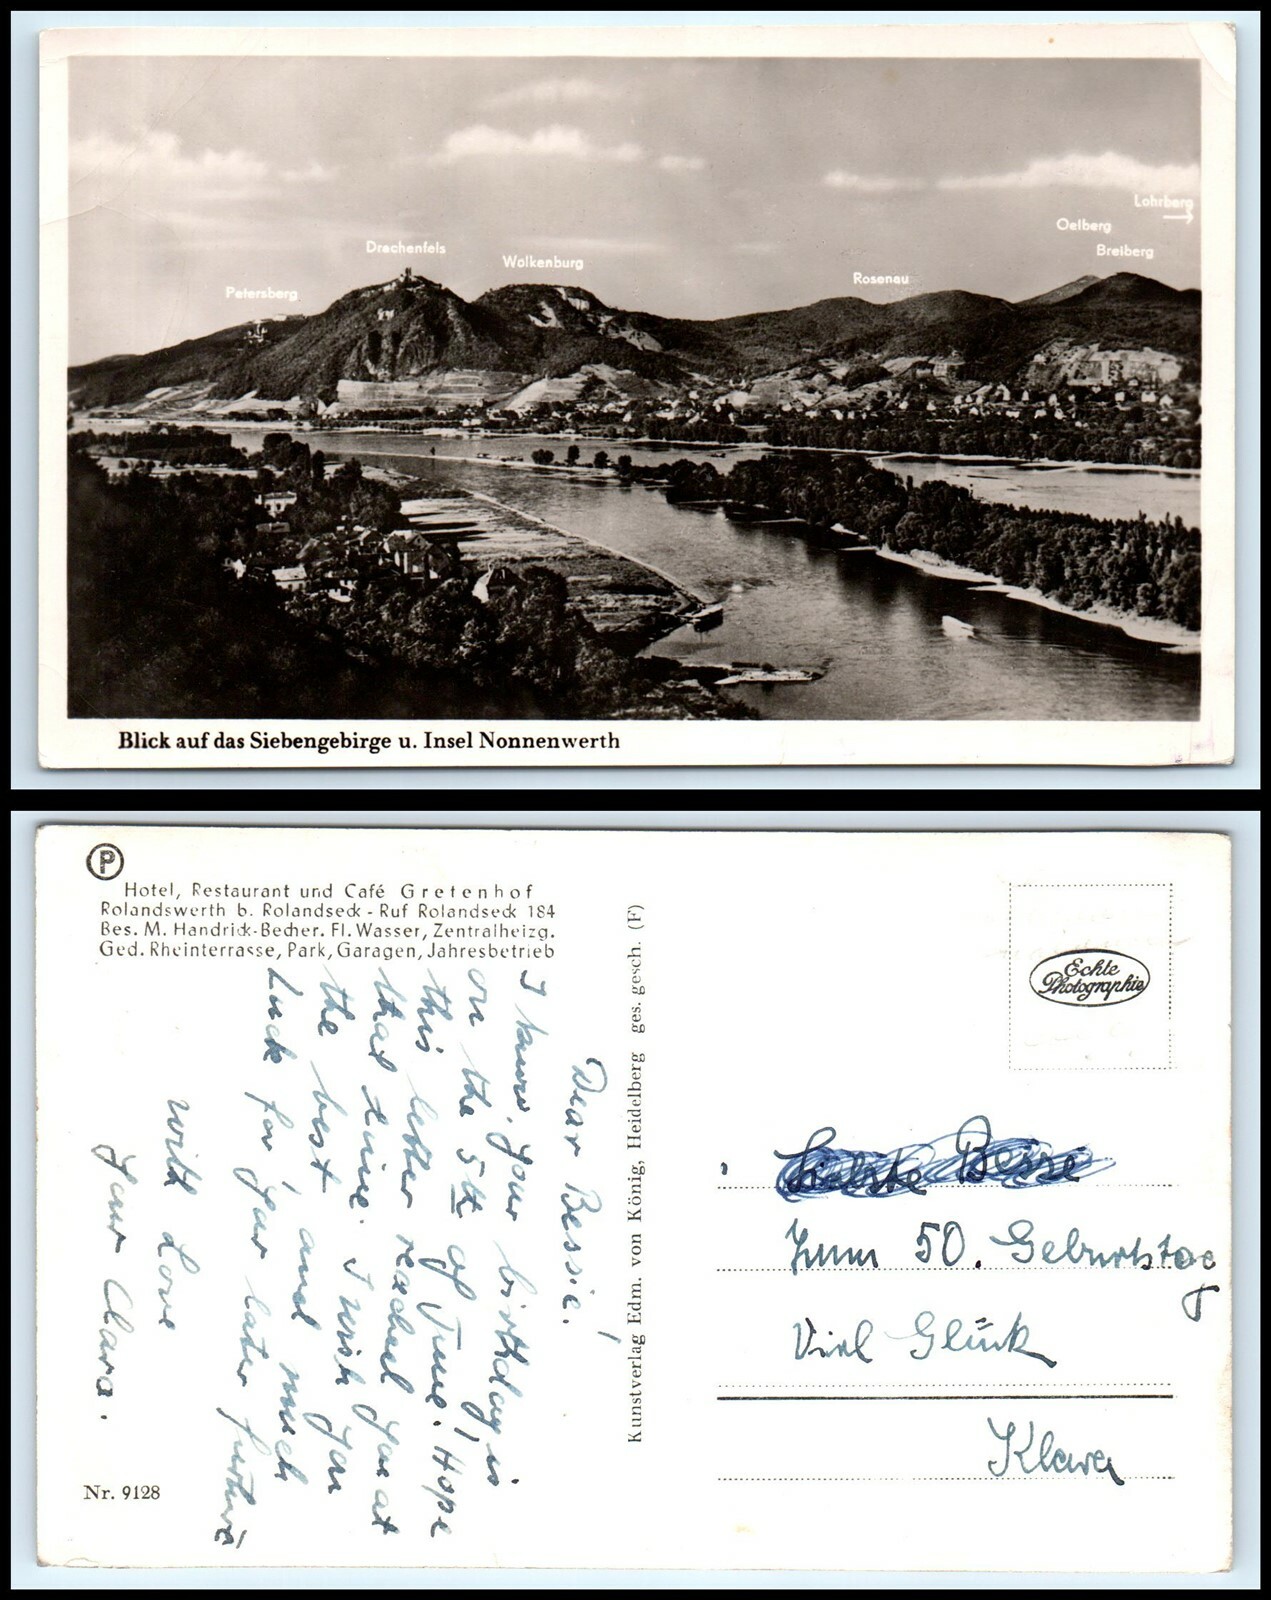 Lohrberg
Oelberg
Breiberg
Drachenfels
Wolkenburg
Rosenau
Petersberg
Blick auf das Siebengebirge u. Insel Nonnenwerth
P
Hotel, Restaurant und Café Gretenhof
Rolandswerth b. Rolandseck - Ruf Rolandseck 184
Bes. M. Handrick-Becher. Fl. Wasser, Zentralheizg.
Ged. Rheinterrasse, Park, Garagen, Jahresbetrieb
Dear Bessie!
I know, your birthday is
on the 5th of June! Hope
this letter reaches you at
that time. I wish you
the best, and much
Luck for your later future
with Love
your Clara.
Nr. 9128
Kunstverlag Edm. von König, Heidelberg ges. gesch. (F)
Echte
Photographie
Liebste Bessie
Zum 50. Geburtstag
Viel Glück
Klara